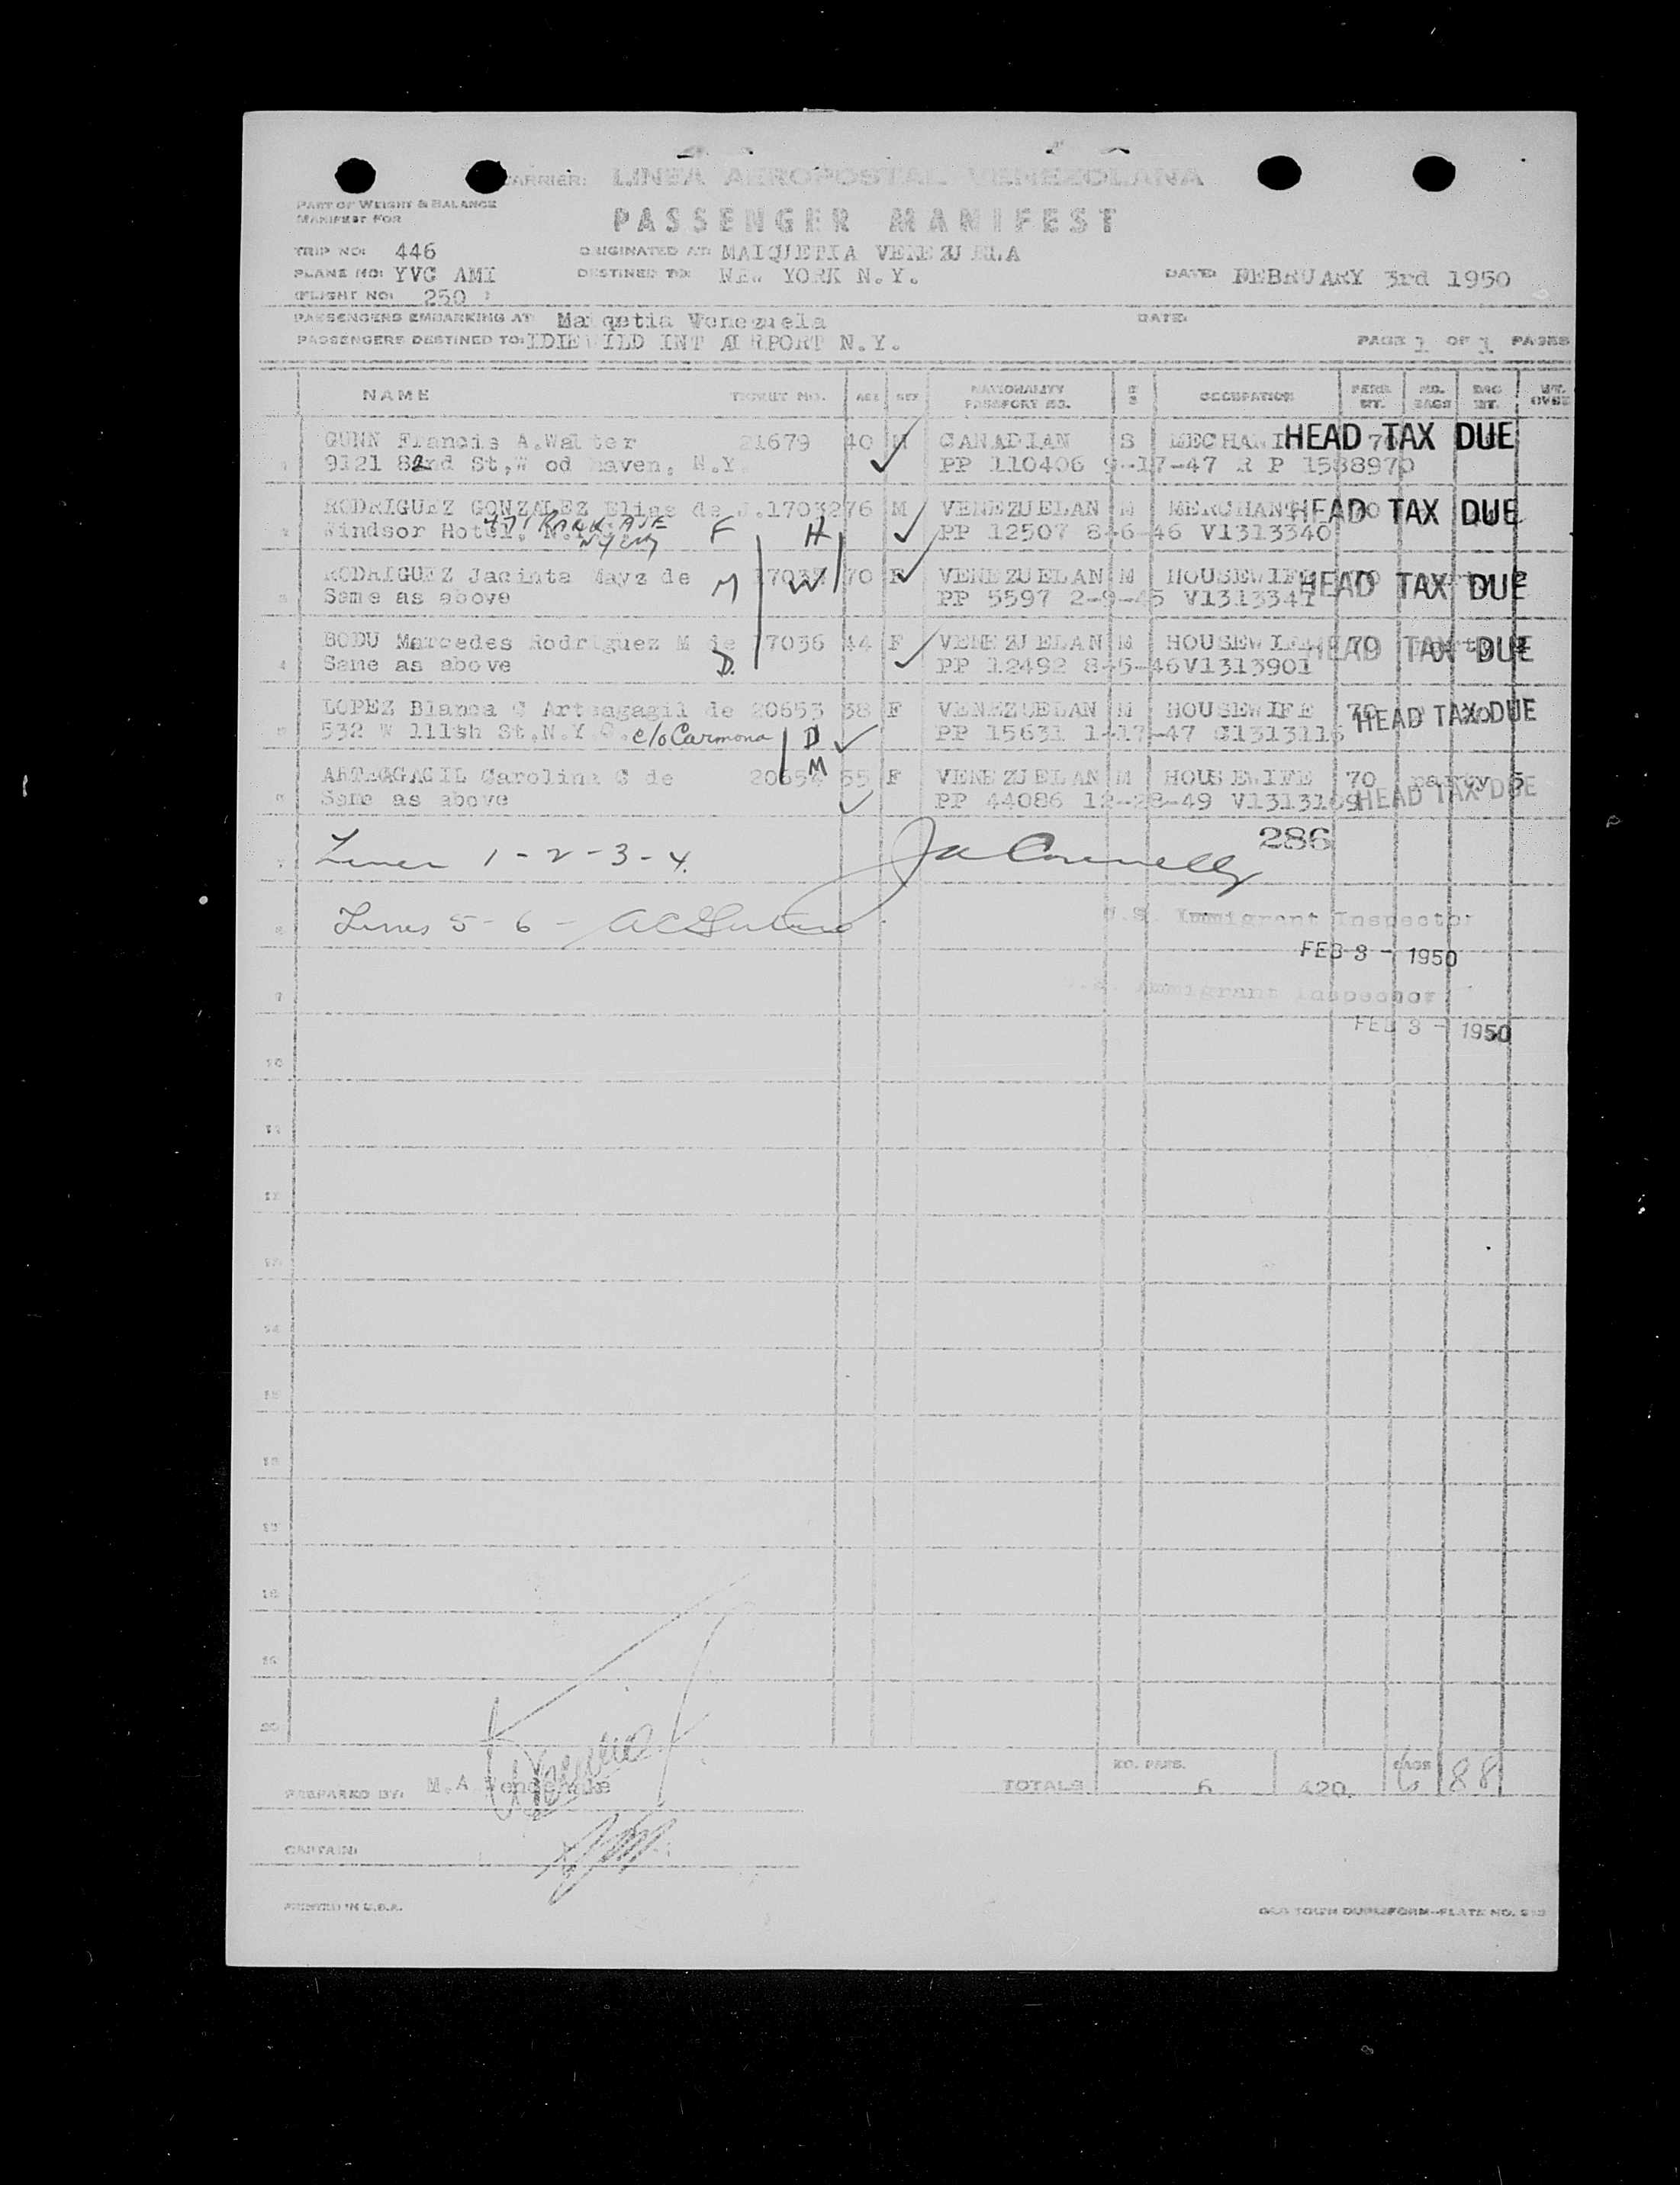 CARRIER: LINEA AEROPOSTAL VENEZOLANA
PART OF WEIGHT & BALANCE
MANIFEST FOR
PASSENGER MANIFEST
TRIP NO: 446 ORIGINATED AT: MAIQUETIA VENEZUELA
PLANE NO: YVC AMI DESTINED TO: NEW YORK N.Y. DATE: FEBRUARY 3rd 1950
(FLIGHT NO: 250 )
PASSENGERS EMBARKING AT Maiqetia Venezuela DATE:
PASSENGERS DESTINED TO: IDLEWILD INT AIRPORT N.Y. PAGE 1 OF 1 PAGES
NAME TICKET NO. AGE SEX NATIONALITY PASSPORT NO. OCCUPATION PERS. WT. NO. BAGS BAG WT. WT. OVER
GUNN Francis A.Walter 21679 40 M CANADIAN S MECHANI 70 HEAD TAX DUE
1 9121 82nd St,W od haven, N.Y. PP 110406 9-17-47 R P 1588970
RODRIGUEZ GONZALEZ Elias de J. 17032 76 M VENEZUELAN M MERCHANT 70 HEAD TAX DUE
2 Windsor Hotel, N.Y. 471 PARK AVE NYCity F H PP 12507 8-6-46 V1313340
RODRIGUEZ Jacinta Mayz de M W 70 F VENEZUELAN M HOUSEWIFE 70 HEAD TAX DUE
3 Same as above PP 5597 2-9-45 V1313341
BODU Mercedes Rodriguez M de 17036 44 F VENEZUELAN M HOUSEWIFE 70 HEAD TAX DUE
4 Same as above D. PP 12492 8-5-46 V1313901
LOPEZ Blanca C Arteagagil de 20653 38 F VENEZUELAN M HOUSEWIFE 70 HEAD TAX DUE
5 532 W 111sh St,N.Y.C. c/o Carmona D PP 15631 1-17-47
ARTEAGAGIL Carolina C de M 20654 55 F VENEZUELAN M HOUSEWIFE 70 party 5
6 Same as above PP 44086 12-28-49 V1313169 HEAD TAX DUE
286
7 Lines 1-2-3-4.
8 Lines 5-6 - U.S. Immigrant Inspector
FEB 3 - 1950
9 U.S. Immigrant Inspector
FEB 3 - 1950
10
20
PREPARED BY: M.A. TOTALS NO. PASS. 6 420. BAGS 6 88
CAPTAIN:
PRINTED IN U.S.A. PLATE NO.